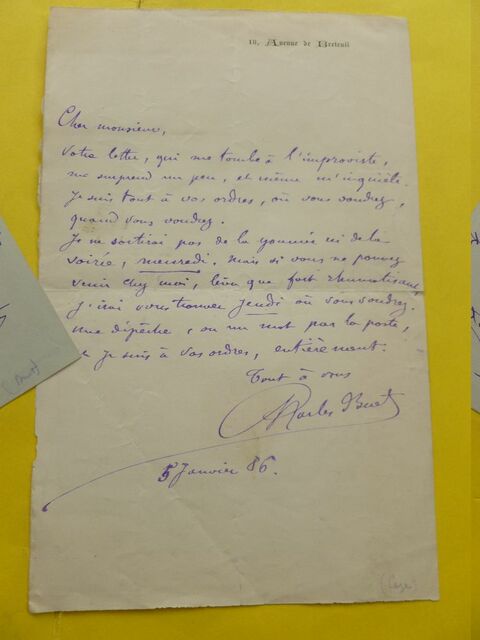 10, Avenue de Breteuil
Cher monsieur,
Votre lettre, qui me tombe à l'improviste,
me surprend un peu, et même m'inquiète.
Je suis tout à vos ordres, où vous voudrez,
quand vous voudrez.
Je ne sortirai pas de la journée ni de la
soirée, mercredi. mais si vous ne pouvez
venir chez moi, bien que fort rhumatisant,
j'irai vous trouver jeudi où vous voudrez.
une dépêche, ou un mot par la poste,
& je suis à vos ordres, entièrement.
Tout à vous
Charles Buet
5 Janvier 86.
(Buet)